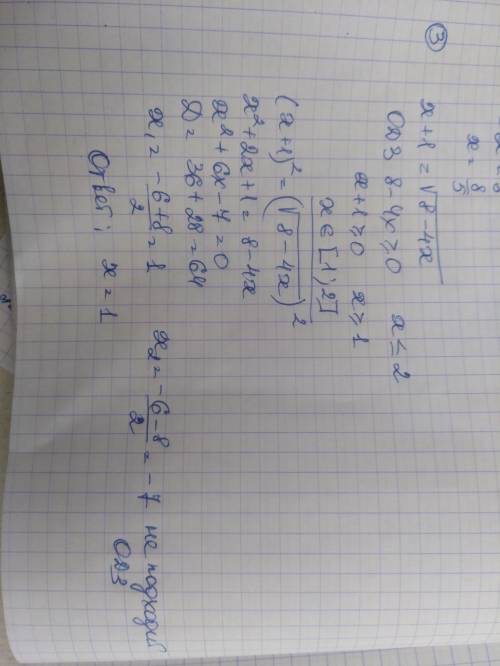 x = 8/5
③
x+1 = √8-4x
ОДЗ 8-4x ≥ 0 x ≤ 2
x+1 ≥ 0 x ≥ 1
x ∈ [1;2]
(x+1)² = (√8-4x)²
x²+2x+1 = 8-4x
x²+6x-7 = 0
D = 36+28 = 64
x₁ = -6+8/2 = 1 x₂ = -6-8/2 = -7 не подходит
ОДЗ
Ответ: x = 1